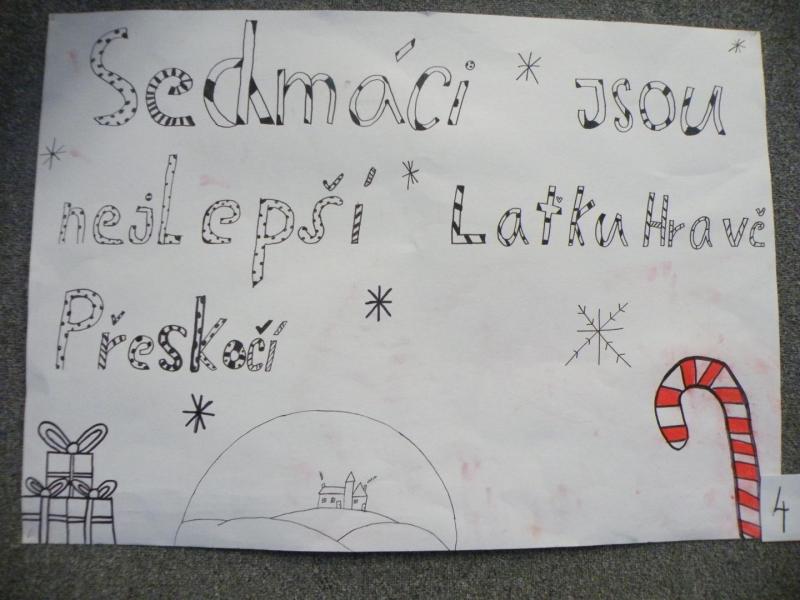 Sedmáci jsou
nejLepší Laťku Hravč
Přeskočí
4